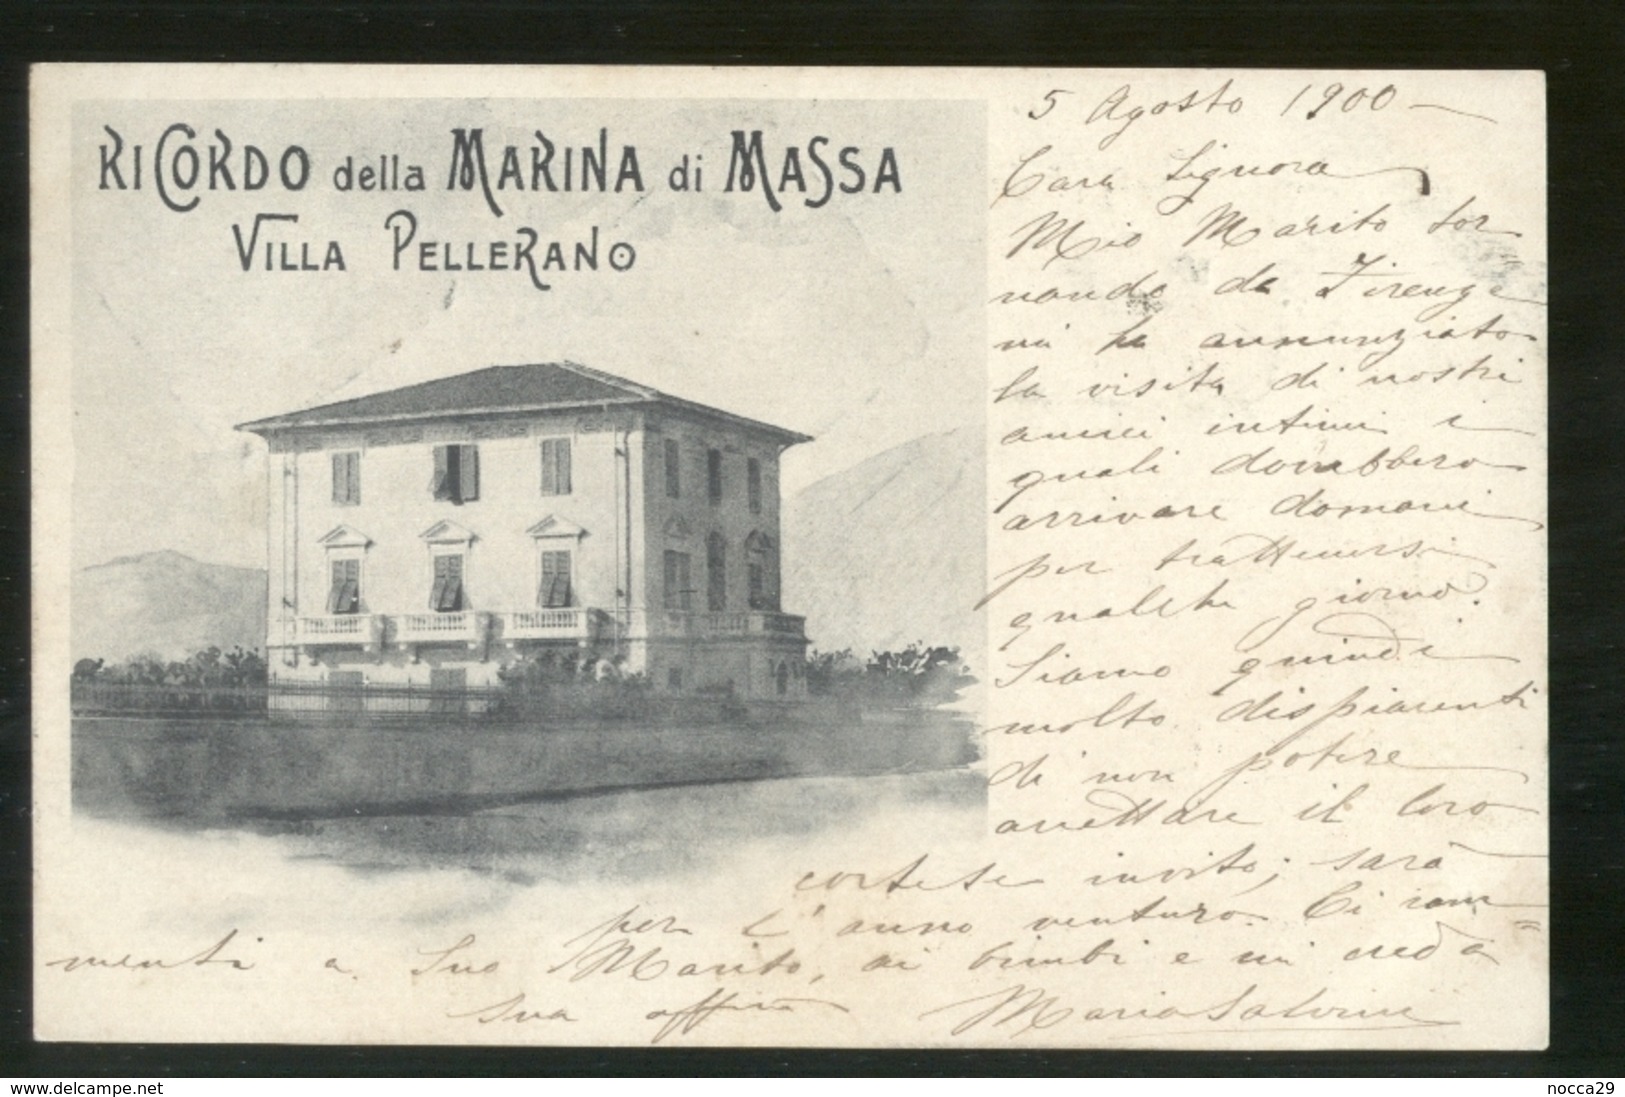 RICORDO della MARINA di MASSA
VILLA PELLERANO
5 Agosto 1900 –
Cara Signora
Mio Marito tor
nando da Firenze
mi ha annunziato
la visita di nostri
amici intimi i
quali dovrebbero
arrivare domani
per trattenersi
qualche giorno.
Siamo quindi
molto dispiacenti
di non potere
accettare il loro
cortese invito; sarà
per l'anno venturo. Ci ram=
menti a Suo Marito, ai bimbi e mi creda
sua affma Maria Salvini
delcampe.net
nocca29